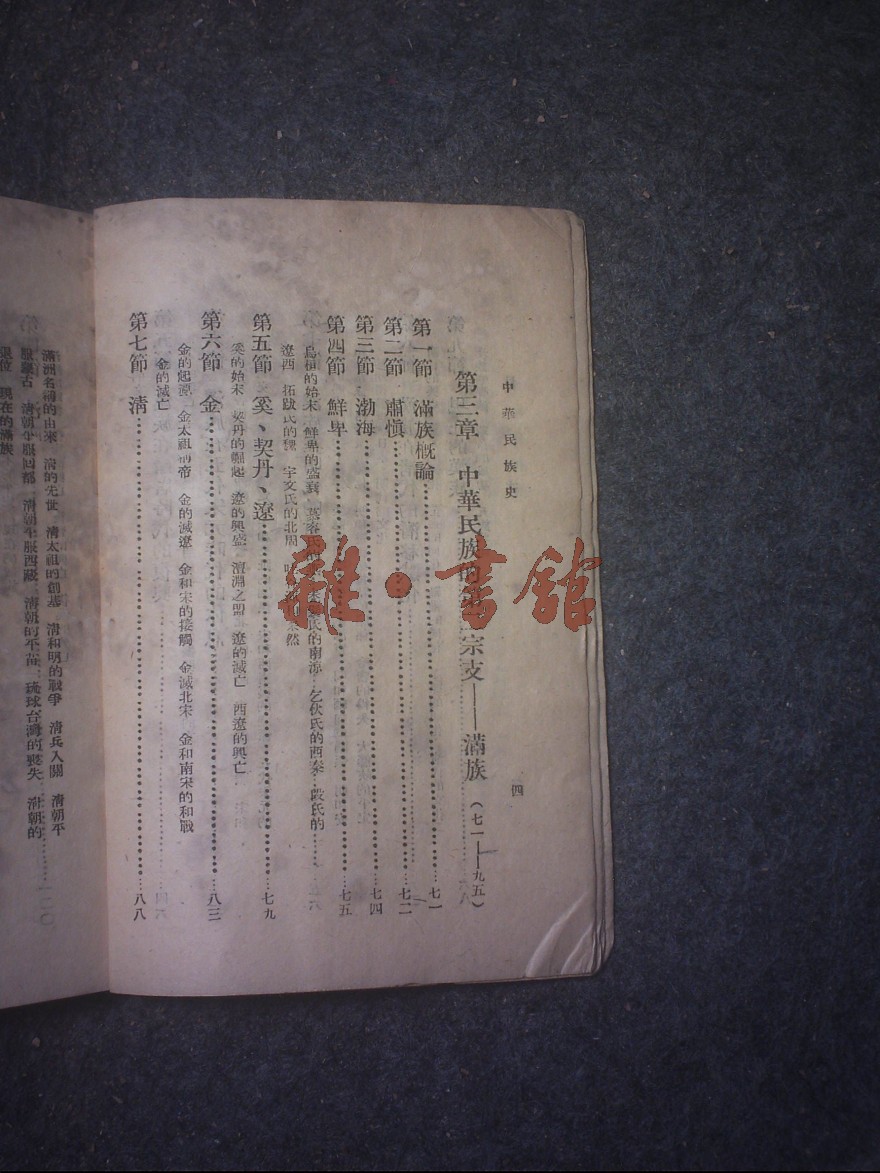 中華民族史
四
第三章 中華民族的第 宗支——滿族(七一——九五)
第一節 滿族概論……七一
第二節 肅愼……七二
第三節 渤海……七四
第四節 鮮卑……七五
烏桓的始末 鮮卑的盛衰 慕容氏 氏的南涼 乞伏氏的西秦 段氏的
遼西 拓跋氏的魏 宇文氏的北周 然
第五節 奚、契丹、遼……七九
奚的始末 契丹的崛起 遼的興盛 澶淵之盟 遼的滅亡 西遼的興亡
第六節 金……八三
金的起源 金太祖稱帝 金的滅遼 金和宋的接觸 金滅北宋 金和南宋的和戰
金的滅亡
第七節 淸……八八
滿洲名稱的由來 淸的先世 淸太祖的創基 淸和明的戰爭 淸兵入關 淸朝平
服蒙古 淸朝平服回部 淸朝平服西藏 淸朝的平苗 琉球台灣的喪失 淸朝的
退位 現在的滿族
雜·書館